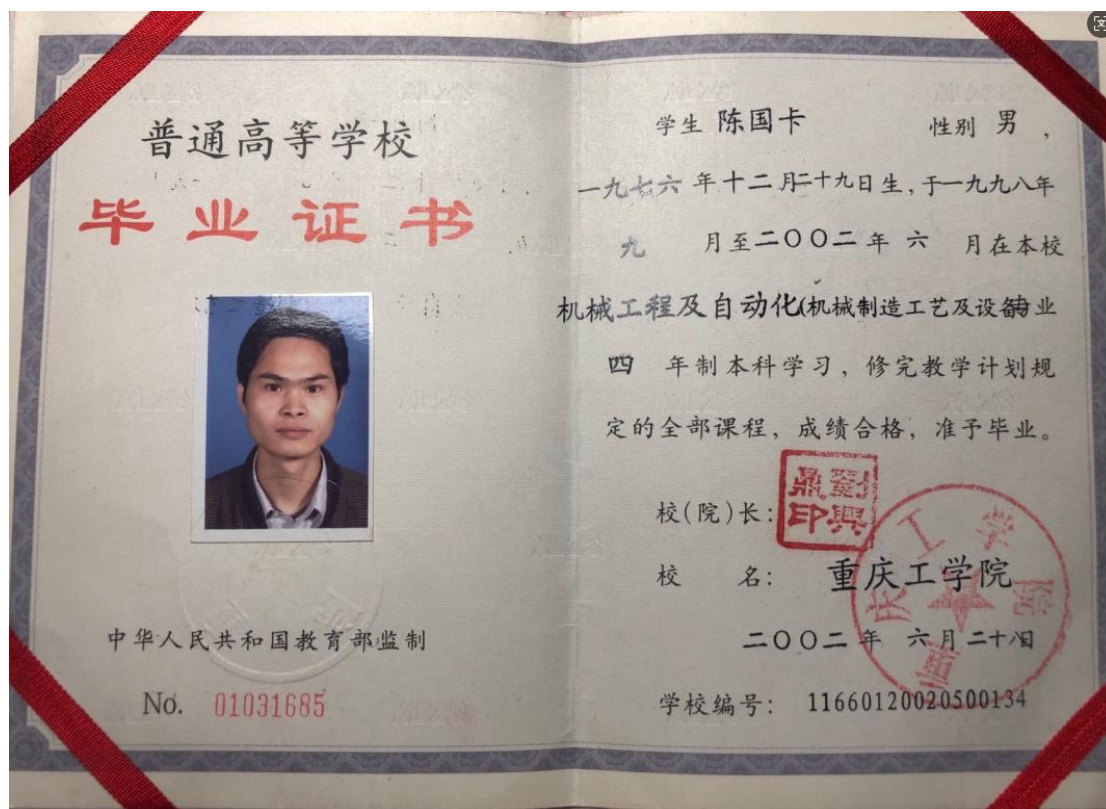 普通高等学校
毕业证书
中华人民共和国教育部监制
No. 01031685
学生 陈国卡 性别 男 ,
一九七六 年十二月二十九日生, 于一九九八年
九 月至二〇〇二年 六 月在本校
机械工程及自动化(机械制造工艺及设备)专业
四 年制本科学习, 修完教学计划规
定的全部课程, 成绩合格, 准予毕业。
校(院)长: 劉興鼎印
校 名: 重庆工学院
二〇〇二年 六月二十八日
学校编号: 11660120020500134
重庆工学院